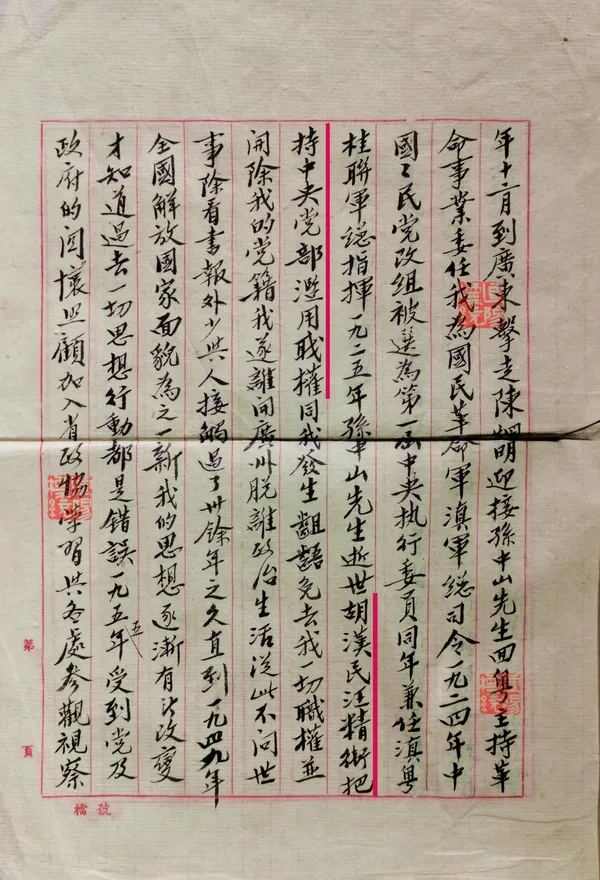 年十二月到廣東擊走陳炯明迎接孫中山先生回粵主持革
命事業委任我為國民革命軍滇軍總司令一九二四年中
國〻民党改組被選為第一屆中央执行委員同年兼任滇粵
桂聯軍總指揮一九二五年孫中山先生逝世胡漢民汪精衛把
持中央党部濫用职權同我發生齟齬免去我一切職權並
開除我的党籍我遂離開廣州脱離政治生活從此不問世
事除看書報外少與人接觸過了卅餘年之久直到一九四九年
全國解放国家面貌為之一新我的思想逐漸有所改變
才知道過去一切思想行動都是錯誤一九五五年受到党及
政府的関懷照顧加入省政協學習與各處參觀視察
第 頁
檔號